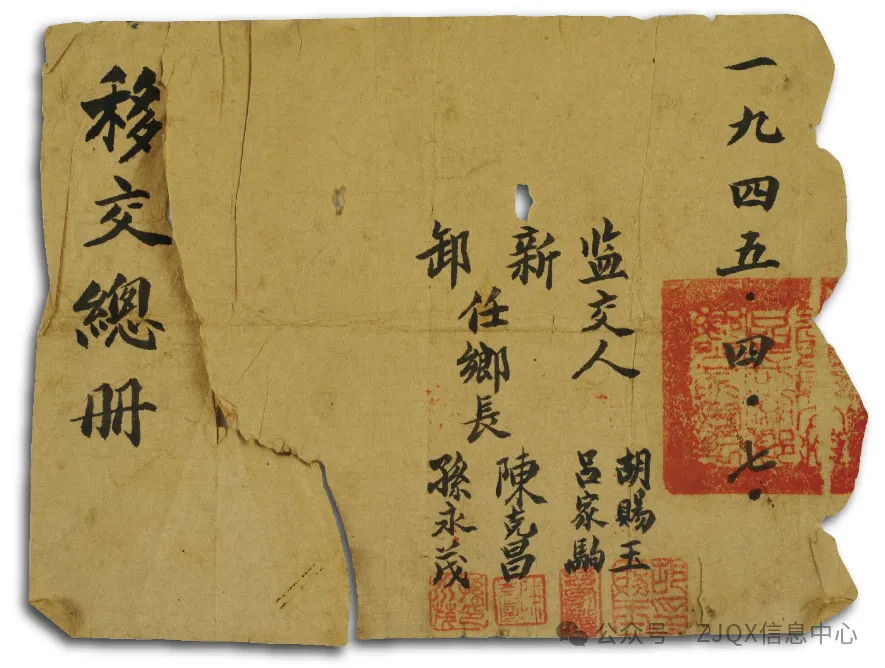 一九四五·四·七·
监交人 胡賜玉
呂家駒
新
卸
任鄉長 陳克昌
孫永茂
移交總冊
公众号·ZJQX信息中心